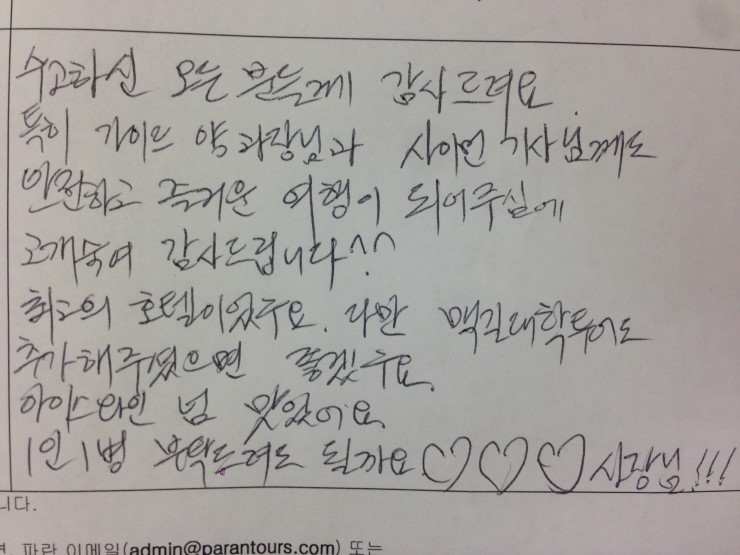 수고하신 모든 분들께 감사드려요.
특히 가이드 약과장님과 사이먼 기사님께도
안전하고 즐거운 여행이 되어주심에
고개숙여 감사드립니다^^
최고의 호텔이었구요. 다만 맥길대학투어도
추가해주셨으면 좋겠구요.
아이스와인 넘 맛있어요.
1인 1병 부탁드려도 될까요♡♡♡ 사장님!!!
니다.
파란 이메일(admin@parantours.com) 또는